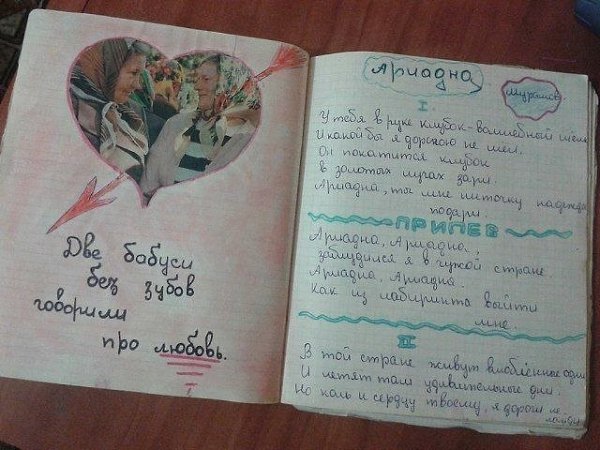 Две бабуси
без зубов
говорили
про любовь.
Ариадна
Муратов
I
У тебя в руке клубок-волшебный шелк
И какой бы я дорогою не шел.
Он покатится клубок
в золотых лучах зари.
Ариадна, ты мне ниточку надежды
подари.
ПРИПЕВ
Ариадна, Ариадна,
заблудился я в чужой стране
Ариадна, Ариадна.
Как из лабиринта выйти
мне.
II
В той стране живут влюбленные одни
И летят там удивительные дни.
Но коль к сердцу твоему, я дороги не
найду